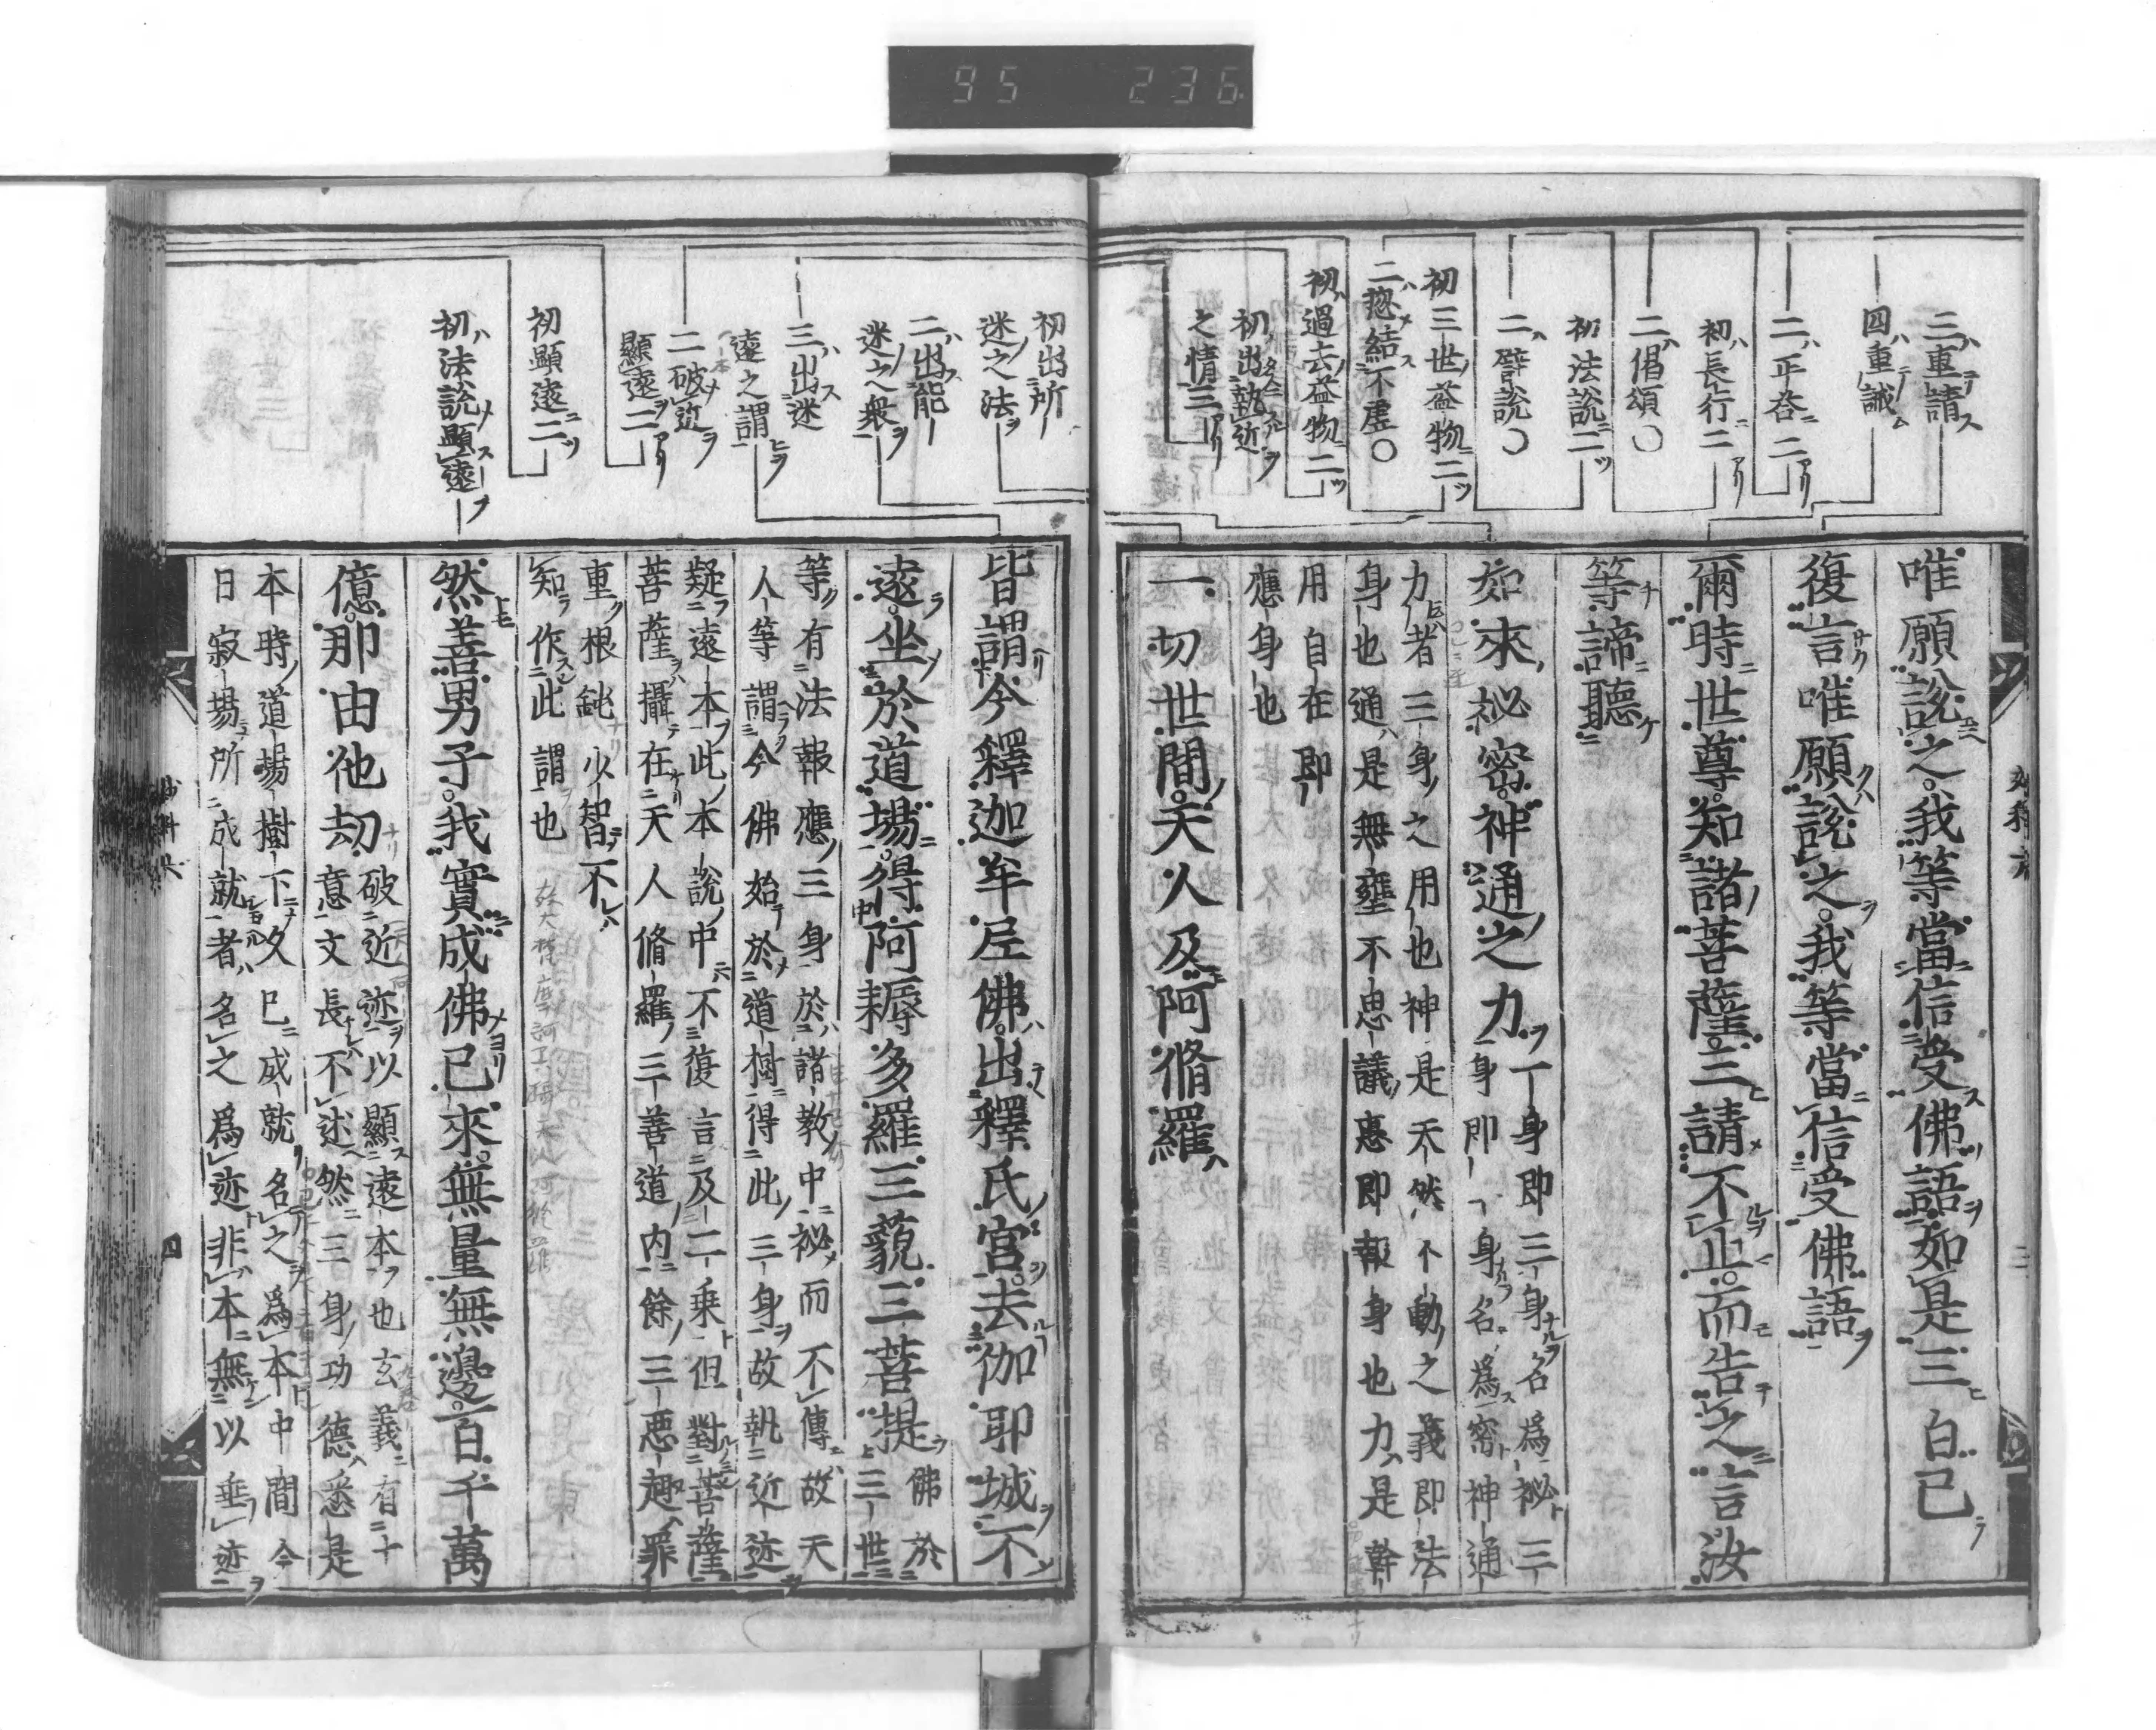 95 236
三重請
四重誡
二正答二
初長行二
二偈頌〇
初法説二
二譬説〇
初三世益物二
二總結不虛〇
初過去益物二
初出執近
之情三
唯願説之我等當信受佛語如是三白已
復言唯願説之我等當信受佛語
爾時世尊知諸菩薩三請不止而告之言汝
等諦聽
如來祕密神通之力
一身即三身名爲祕三
身即一身名爲密神通
力者三身之用也神是天然不動之義即法
身也通是無壅不思議惠即報身也力是幹
用自在即
應身也
一切世間天人及阿脩羅
初出所
迷之法
二出能
迷之衆
三出迷
遠之謂
二破近
顯遠二
初顯遠二
初法説顯遠
皆謂今釋迦牟尼佛出釋氏宮去伽耶城不
遠坐於道場得阿耨多羅三藐三菩提
佛於
三世
等有法報應三身於諸教中祕而不傳故天
人等謂今佛始於道樹得此三身故執近迹
疑遠本此本説中不復言及二乘但對菩薩
菩薩攝在天人脩羅三善道内餘三惡趣罪
重根鈍少智不
知作此謂也
然善男子我實成佛已來無量無邊百千萬
億那由他劫
破近迹以顯遠本也玄義有十
意文長不述然三身功德悉是
本時道場樹下久已成就名之爲本中間今
日寂場所成就者名之爲迹非本無以垂迹
四